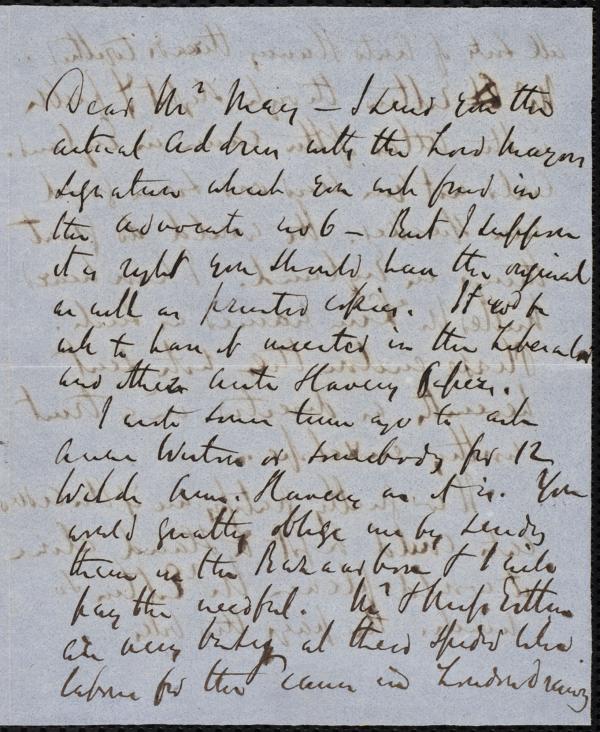 Dear Mr May — I send you the
actual Address with the Lord Mayors
signature which you will find in
the Advocate no 6 — But I suppose
it is right you should have the original
as well as printed copies. It wd be
well to have it inserted in the Liberator
and other Anti Slavery Papers.
I wrote some time ago to ask
Anne Weston or somebody for 12
Welds Amn. Slavery as it is. You
would greatly oblige me by sending
them in the Bazaar box & I will
pay the needful. Mr & Miss Estlin
are very busy at their
labour for the cause in London